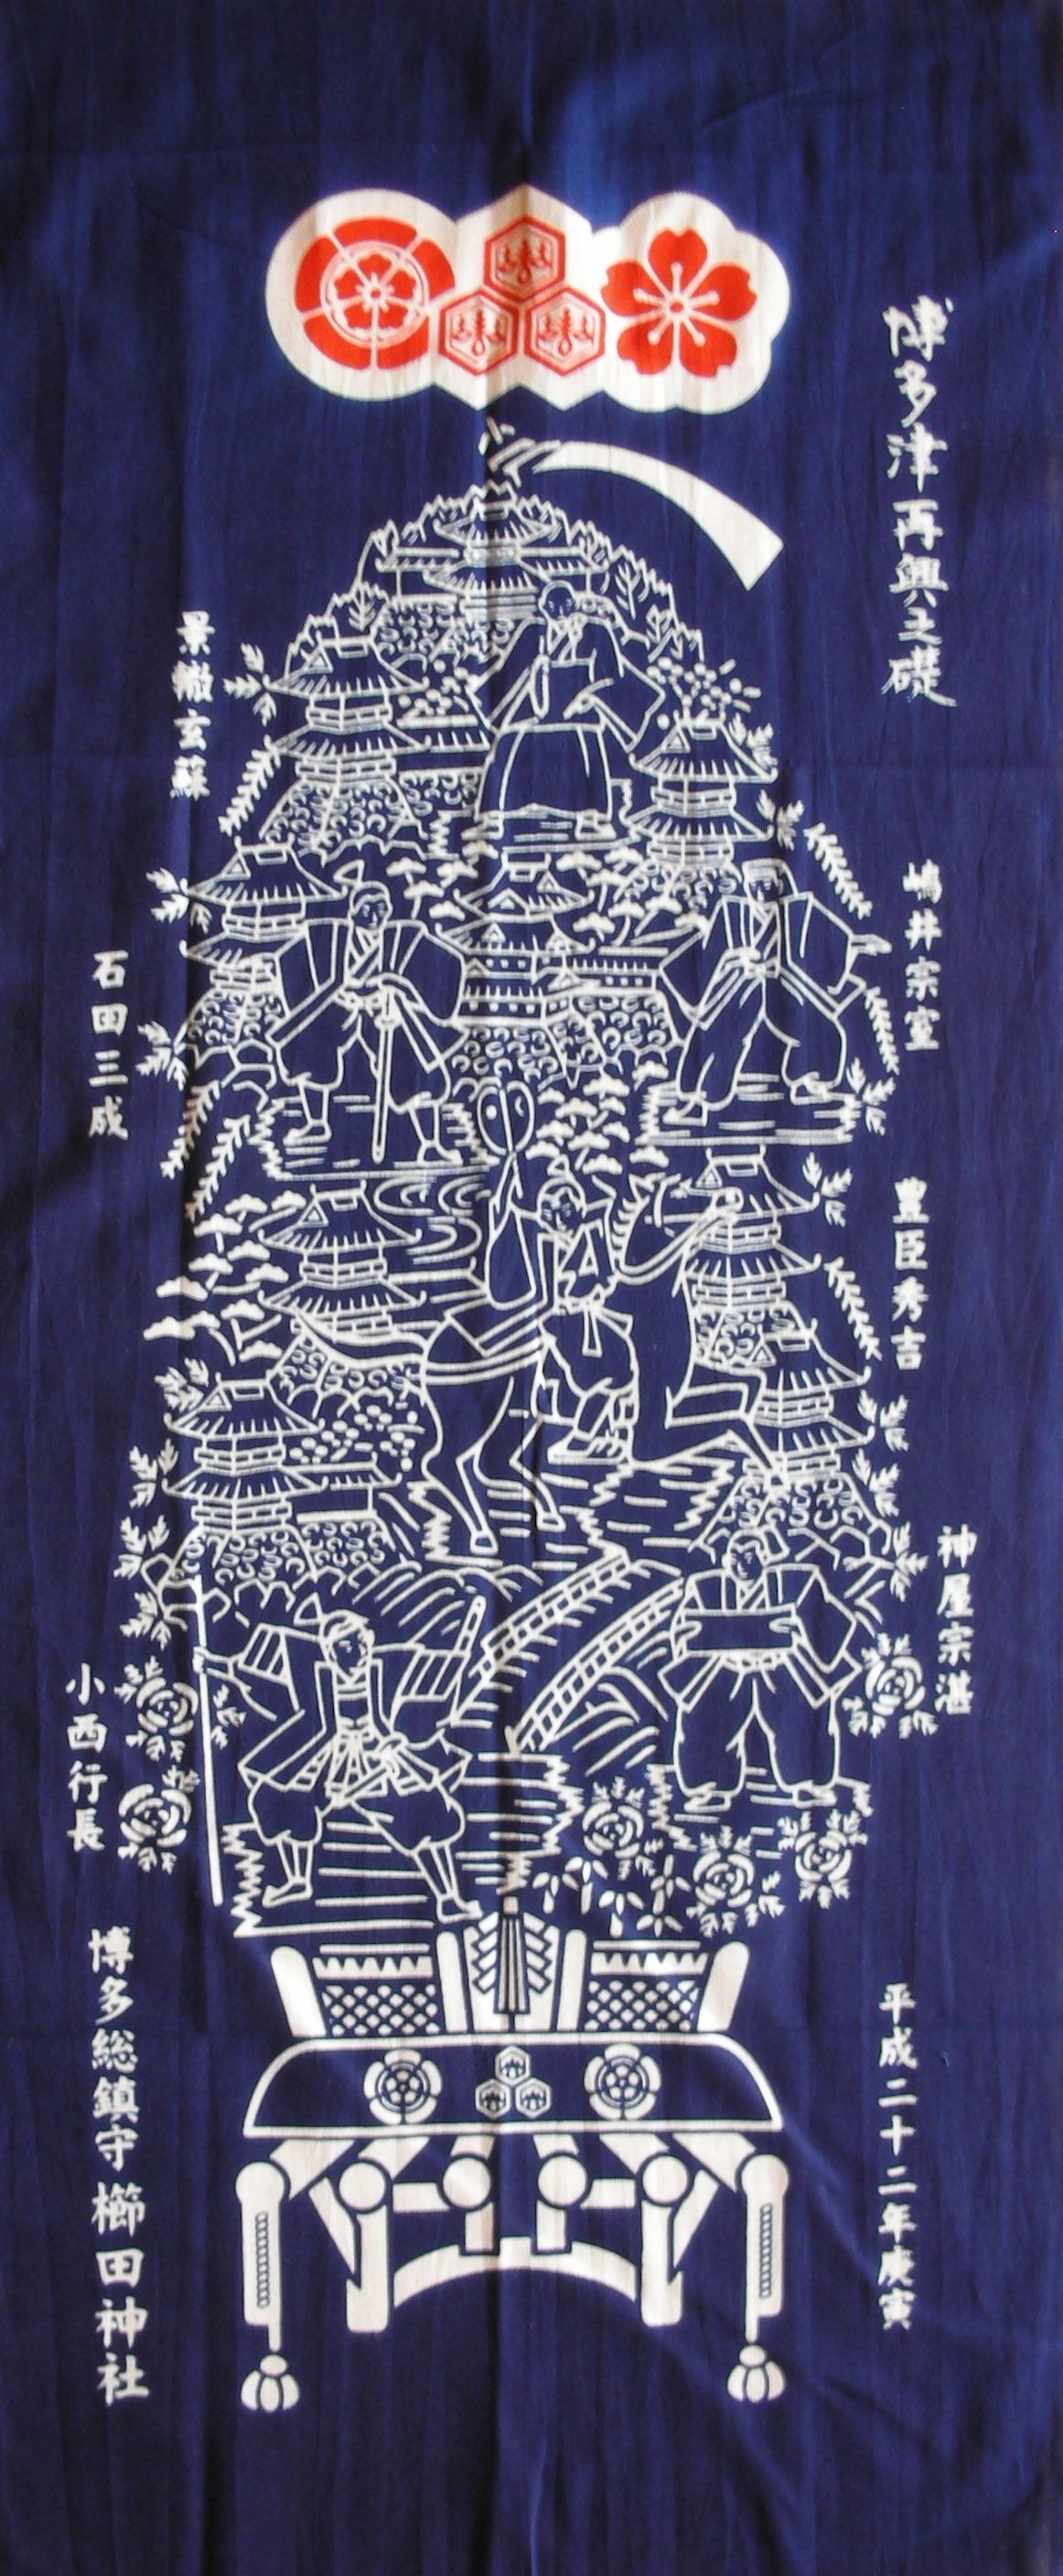 博多津再興之礎
嶋井宗室
豊臣秀吉
神屋宗湛
平成二十二年庚寅
景轍玄蘇
石田三成
小西行長
博多総鎮守櫛田神社